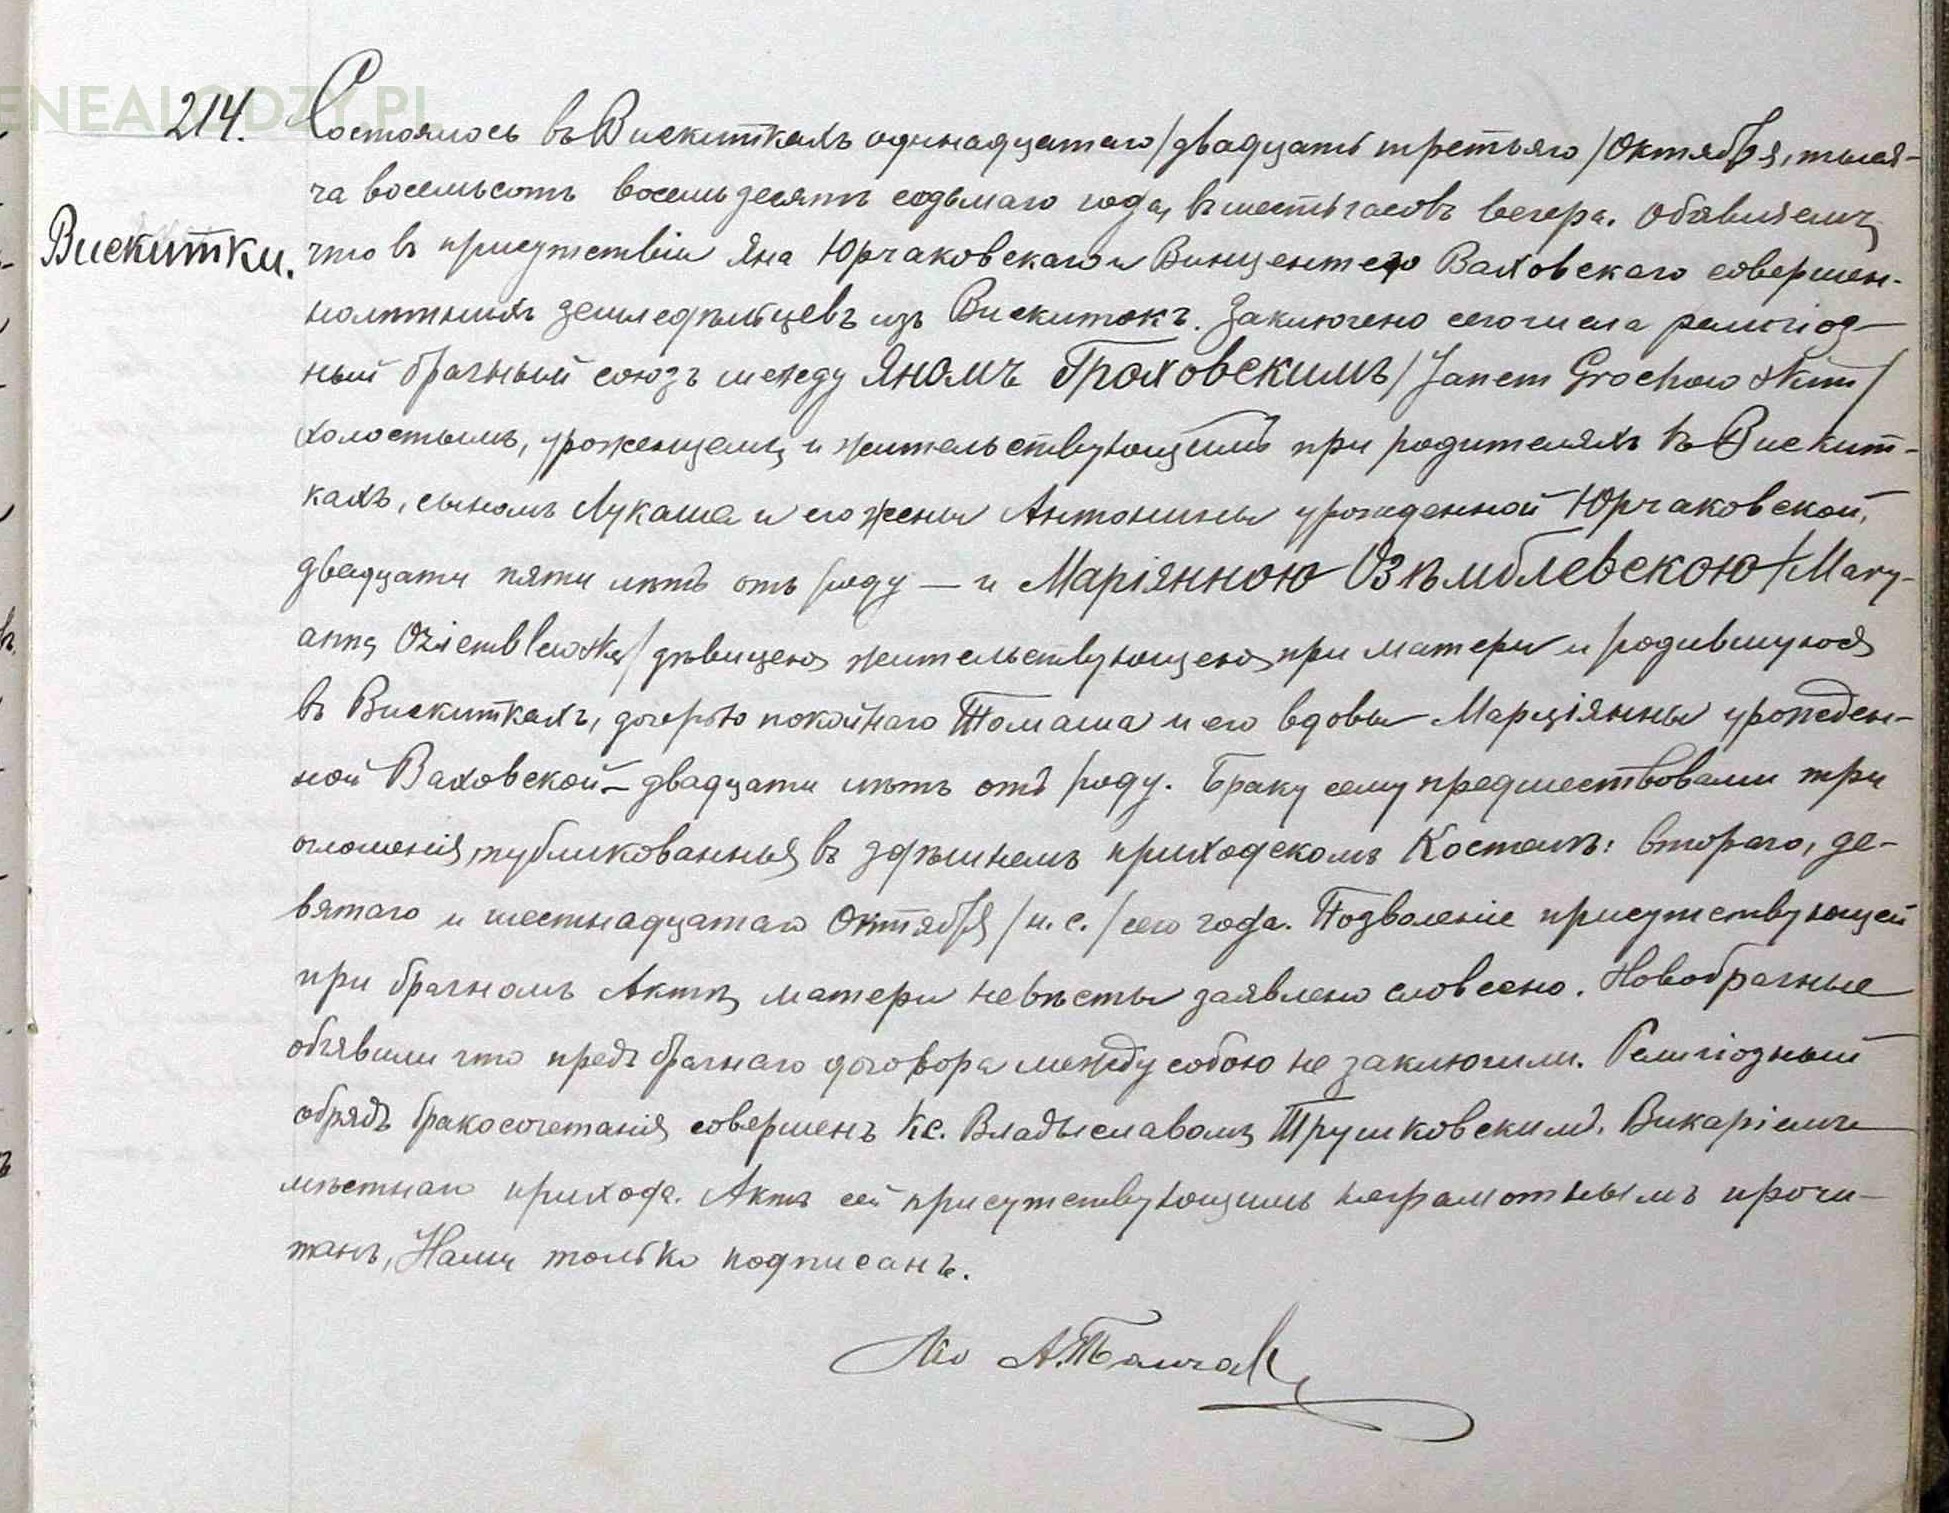 GENEALODZY.PL
214. Состоялось въ Вискиткахъ одинадцатаго /двадцать третьяго/ Октября, тыся-
ча восемьсотъ восемьдесятъ седьмаго года, въ шесть часовъ вечера. Объявляемъ,
Вискитки. что въ присутствіи Яна Юрчаковскаго и Винцентего Ваховскаго совершен-
нолѣтнихъ земледѣльцевъ изъ Вискитокъ. Заключено сего числа религіоз-
ный брачный союзъ между Яномъ Гроховскимъ /Janem Grochowskim/
холостымъ, уроженцемъ и жительствующимъ при родителяхъ въ Вискит-
кахъ, сыномъ Лукаша и его жены Антонины урожденной Юрчаковской,
двадцати пяти лѣтъ отъ роду — и Маріянною Озѣмблевскою /Mary-
anną Oziemblewską/ дѣвицею жительствующею при матери и родившуюся
въ Вискиткахъ, дочерью покойнаго Томаша и его вдовы Марціянны урожден-
ной Ваховской — двадцати лѣтъ отъ роду. Браку сему предшествовали три
оглашенія, публикованныя въ здѣшнемъ приходскомъ Костелѣ: втораго, де-
вятаго и шестнадцатаго Октября /н. с./ сего года. Позволеніе присутствующей
при брачномъ Актѣ, матери невѣсты заявлено словесно. Новобрачные
объявили что предъбрачнаго договора между собою не заключили. Религіозный
обрядъ бракосочетанія совершенъ Кс. Владыславомъ Трушковскимъ. Викаріемъ
мѣстнаго прихода. Актъ сей присутствующимъ неграмотнымъ прочи-
танъ, Нами только подписанъ.